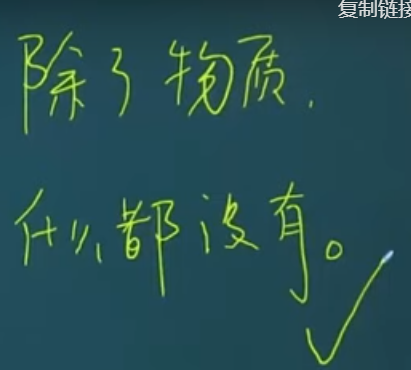 复制链接
除了物质，
什么都没有。